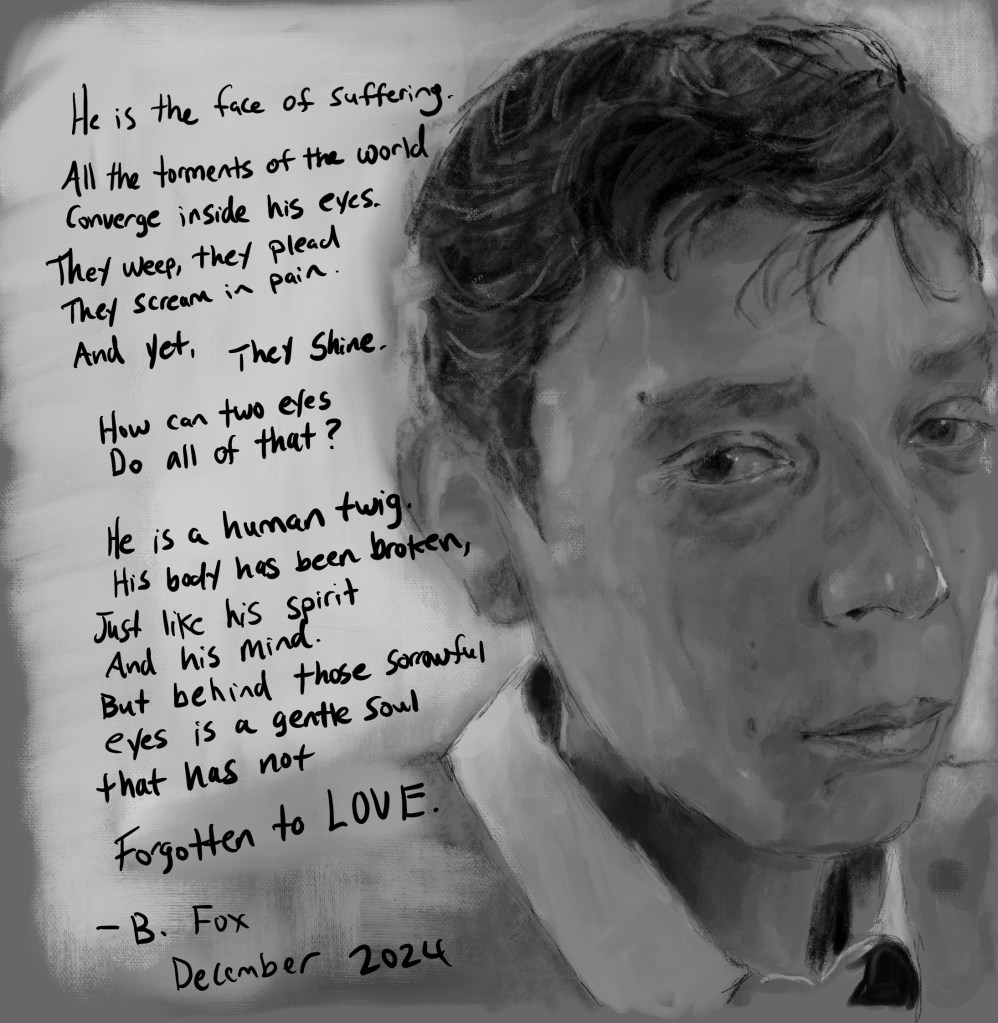 He is the face of suffering.
All the torments of the world
Converge inside his eyes.
They weep, they plead
They scream in pain.
And yet, They Shine.
How can two eyes
Do all of that?
He is a human twig.
His body has been broken,
Just like his spirit
And his mind.
But behind those sorrowful
eyes is a gentle soul
that has not
Forgotten to LOVE.
- B. Fox
December 2024